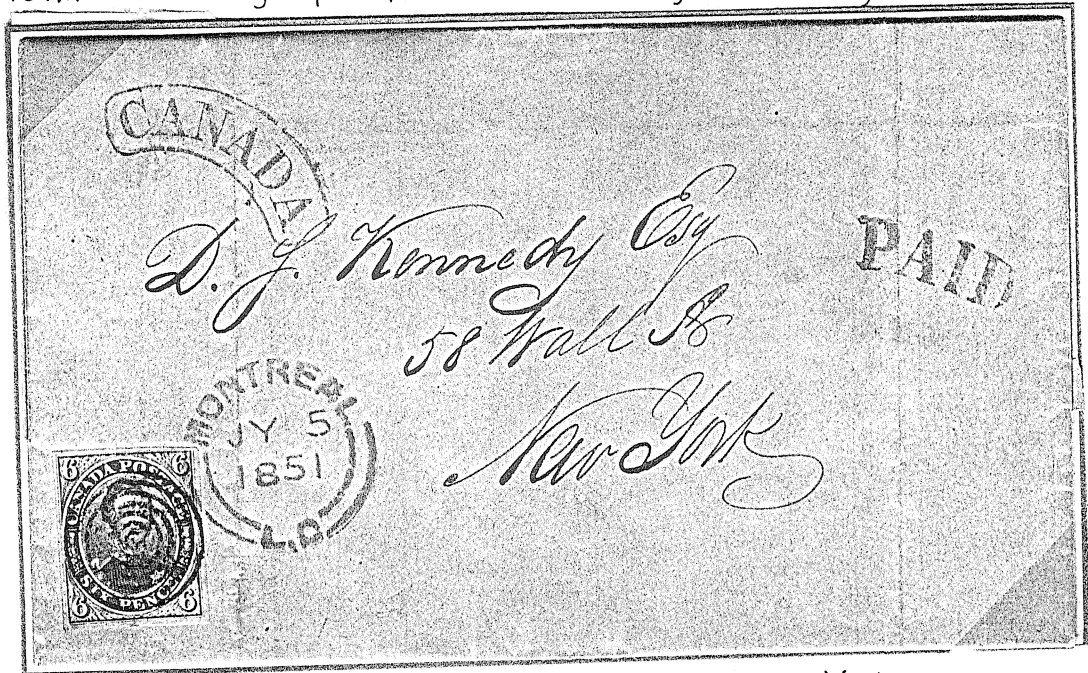 CANADA
D. J. Kennedy Esq
PAID
58 Wall St
New York
MONTREAL
JY 5
1851
L.C.
6 6
CANADA POSTAGE
SIX PENCE
6 6